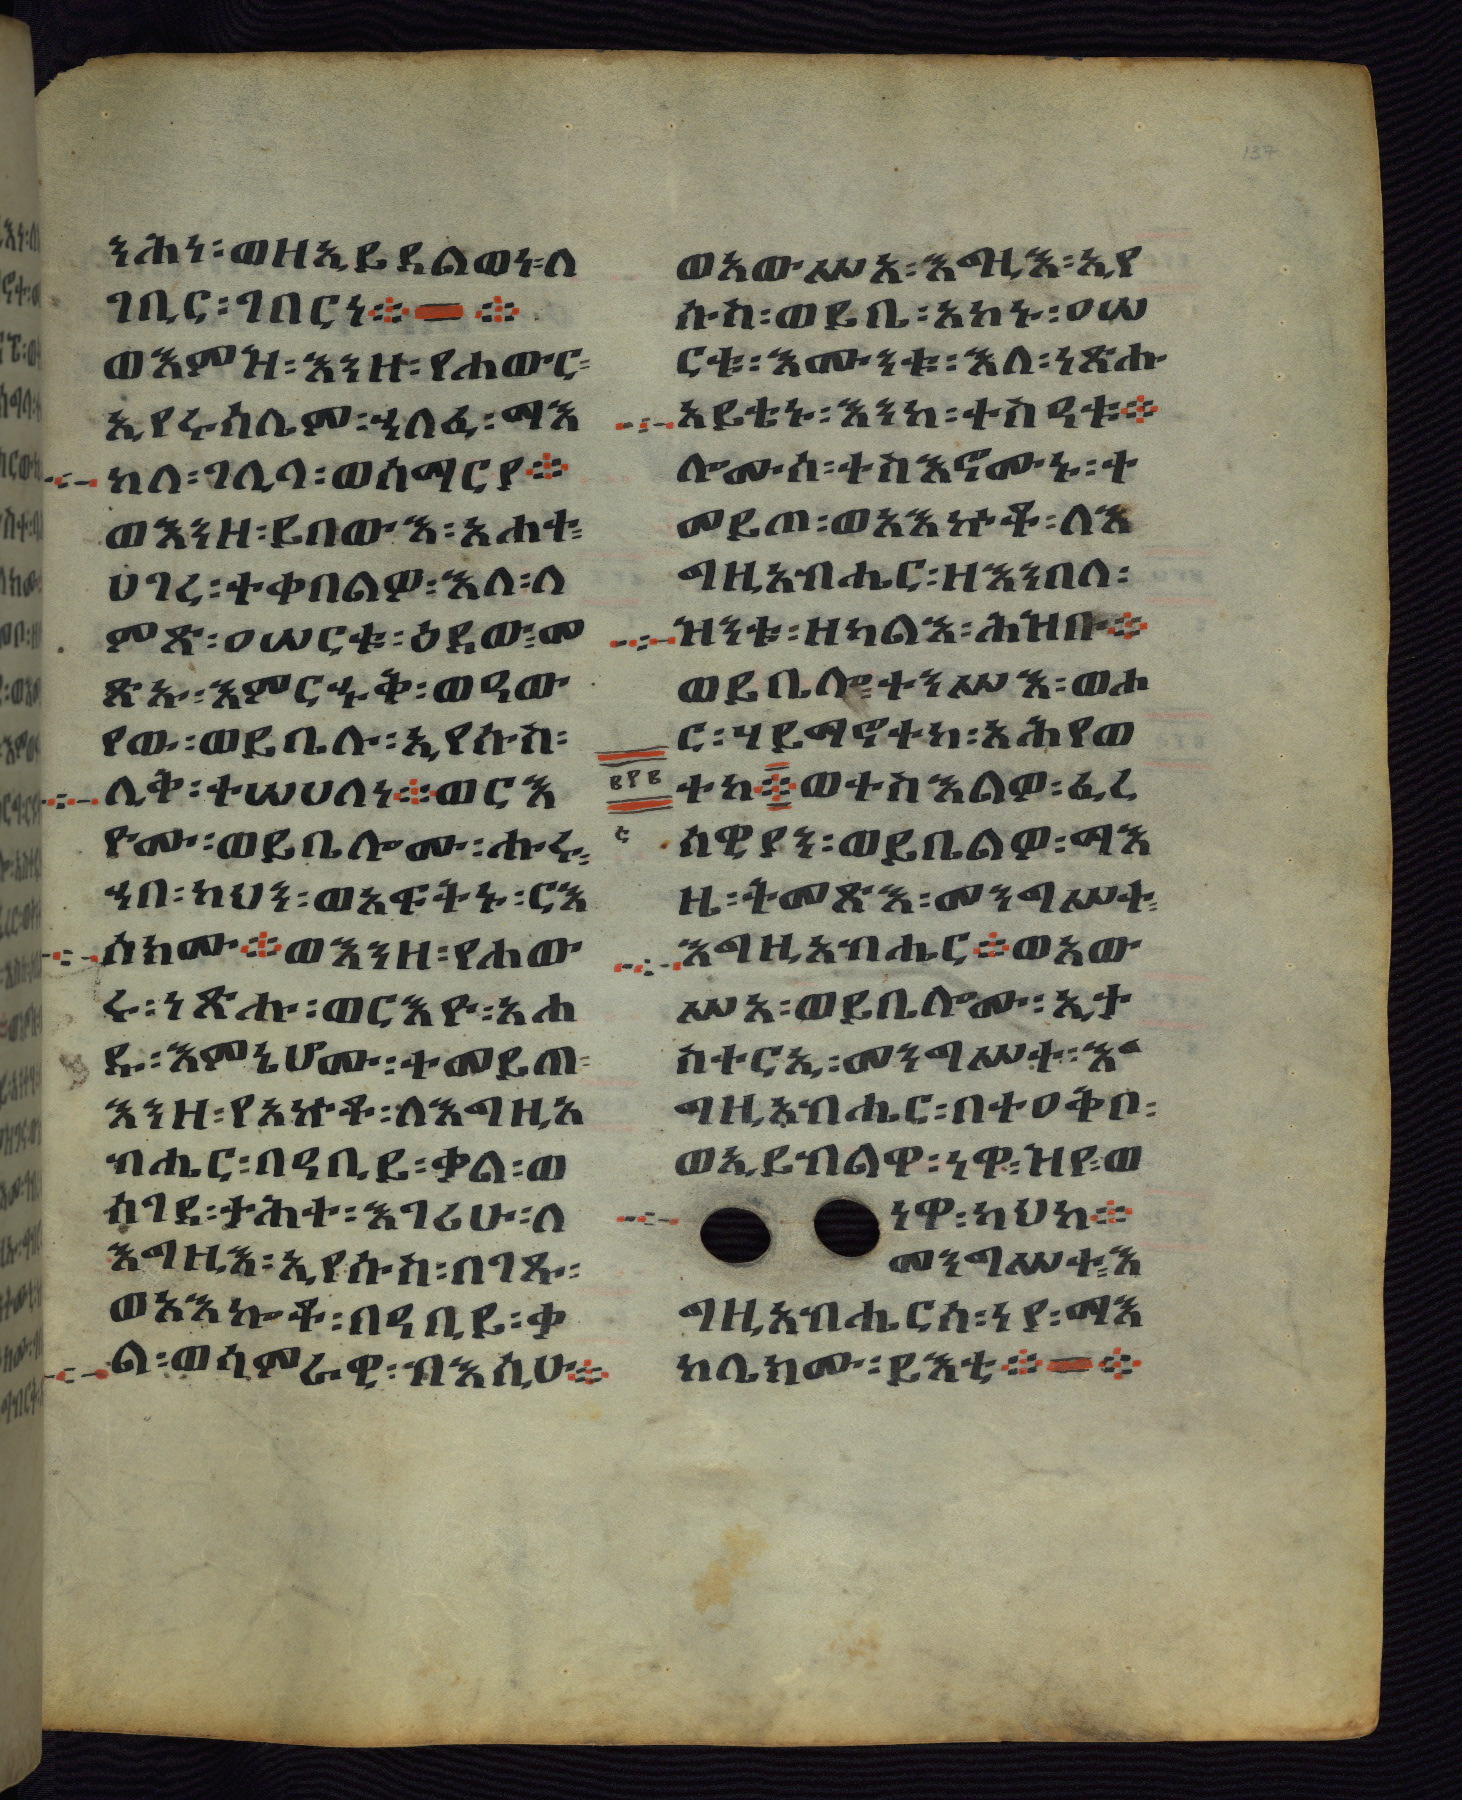 ንሕነ፡ወዘኢይደልወነ፡ለ
ገቢር፡ገበርነ።
ወእምዝ፡እንዘ፡የሐውር፡
ኢየሩሳሌም፡ኀለፈ፡ማእ
ከለ፡ገሊላ፡ወሰማርያ።
ወእንዘ፡ይበውእ፡አሐተ፡
ሀገረ፡ተቀበልዎ፡እለ፡ለ
ምጽ፡ዐሠርቱ፡ዕደው፡መ
ጽኡ፡እምርኁቅ፡ወዳው
የው፡ወይቤሉ፡ኢየሱስ፡
ሊቅ፡ተሠሀለነ።ወርእ
ዮሙ፡ወይቤሎሙ፡ሑሩ፡
ኀበ፡ካህን፡ወአፍትኑ፡ርእ
ሰክሙ።ወእንዘ፡የሐው
ሩ፡ነጽሑ፡ወርእዮ፡አሐ
ዱ፡እምኔሆሙ፡ተመይጠ፡
እንዘ፡የአኵቶ፡ለእግዚአ
ብሔር፡በዓቢይ፡ቃል፡ወ
ሰገደ፡ታሕተ፡እገሪሁ፡ለ
እግዚእ፡ኢየሱስ፡በገጹ፡
ወአእኰቶ፡በዓቢይ፡ቃ
ል፡ወሳምራዊ፡ብእሲሁ።
ወአውሥአ፡እግዚእ፡ኢየ
ሱስ፡ወይቤ፡አኮኑ፡ዐሠ
ርቱ፡እሙንቱ፡እለ፡ነጽሑ
አይቴኑ፡እንከ፡ተስዓቱ።
ሎሙሰ፡ተስእኖሙኑ፡ተ
መይጠ፡ወአእኵቶ፡ለእ
ግዚአብሔር፡ዘእንበለ፡
ዝንቱ፡ዘካልእ፡ሕዝቡ።
ወይቤሎ፡ተንሥእ፡ወሑ
ር፡ሃይማኖተከ፡አሕየወ
ተከ።ወተስእልዎ፡ፈረ
፪፻፪
ሰዊያን፡ወይቤልዎ፡ማእ
ዜ፡ትመጽእ፡መንግሥተ፡
እግዚአብሔር።ወአው
ሥአ፡ወይቤሎሙ፡ኢታ
ስተርኢ፡መንግሥተ፡እ
ግዚአብሔር፡በተዐቅቦ፡
ወኢይብልዋ፡ነዋ፡ዝየ፡ወ
ነዋ፡ካህከ።
መንግሥተ፡እ
ግዚአብሔርሰ፡ነያ፡ማእ
ከሌክሙ፡ይእቲ።
137